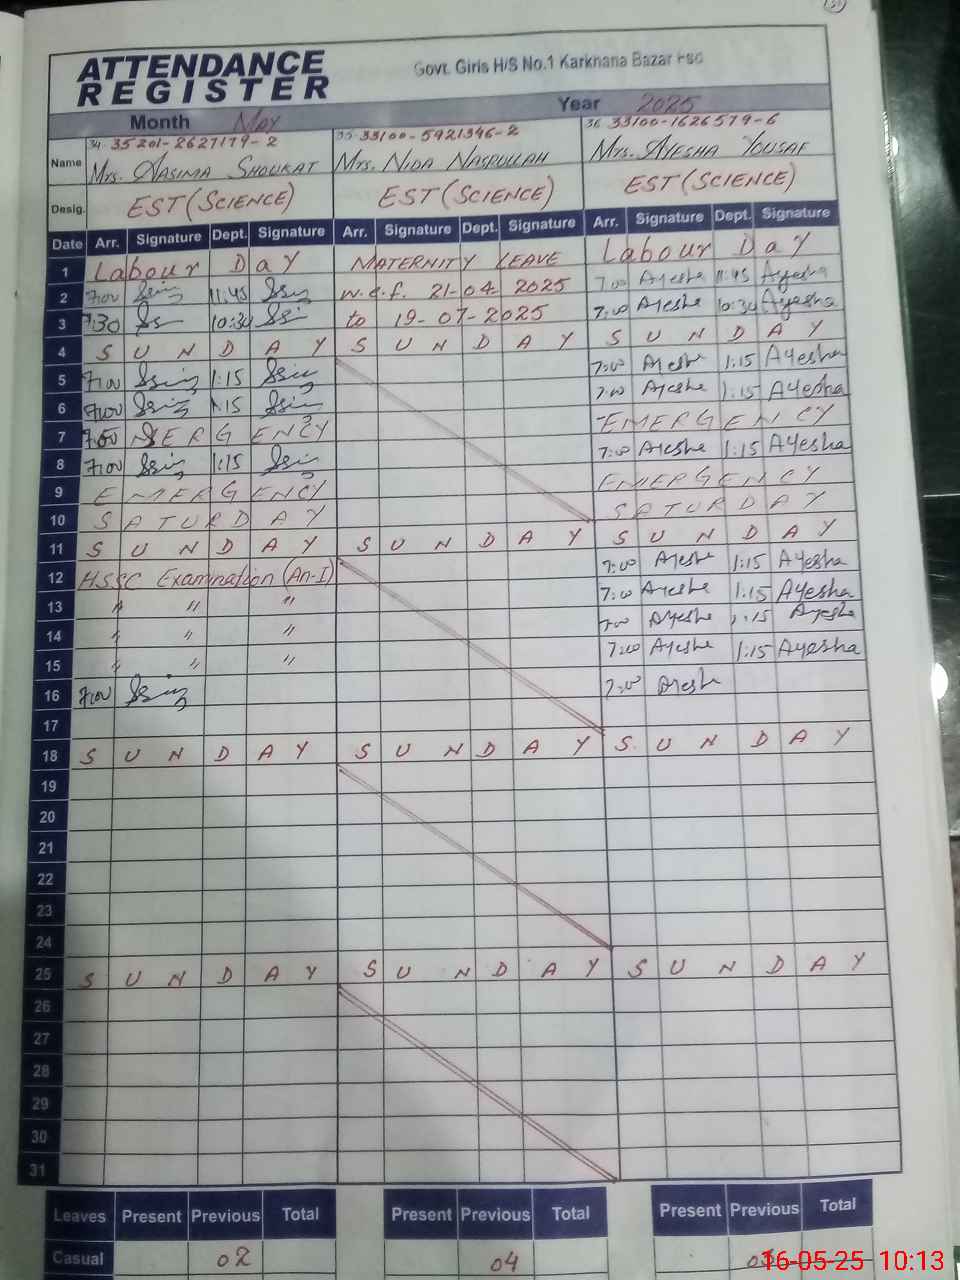 ATTENDANCE REGISTER
Govt. Girls H/S No.1 Karkhana Bazar Fsd
Month May Year 2025
34 35201-2627179-2 35 33100-5921346-2 36 33100-1626579-6
Name Mrs. Nasima Shoukat Mrs. Nida Nasrullah Mrs. Ayesha Yousaf
Desig. EST (SCIENCE) EST (SCIENCE) EST (SCIENCE)
Date Arr. Signature Dept. Signature Arr. Signature Dept. Signature Arr. Signature Dept. Signature
1 Labour Day MATERNITY LEAVE Labour Day
2 7:00 11:45 w.e.f. 21-04-2025 7:00 Ayesha 11:45 Ayesha
3 7:30 10:30 to 19-07-2025 7:00 Ayesha 10:30 Ayesha
4 SUNDAY SUNDAY
5 7:00 1:15 7:00 Ayesha 1:15 Ayesha
6 7:00 1:15 7:00 Ayesha 1:15 Ayesha
7 EMERGENCY EMERGENCY
8 7:00 1:15 7:00 Ayesha 1:15 Ayesha
9 EMERGENCY EMERGENCY
10 SATURDAY SATURDAY
11 SUNDAY SUNDAY SUNDAY
12 HSSC Examination (An-I) 7:00 Ayesha 1:15 Ayesha
13 " " " 7:00 Ayesha 1:15 Ayesha
14 " " " 7:00 Ayesha 1:15 Ayesha
15 " " " 7:00 Ayesha 1:15 Ayesha
16 7:00 7:00 Ayesha
17
18 SUNDAY SUNDAY SUNDAY
19
20
21
22
23
24
25 SUNDAY SUNDAY SUNDAY
26
27
28
29
30
31
Leaves Present Previous Total Present Previous Total Present Previous Total
Casual 02 04
16-05-25 10:13